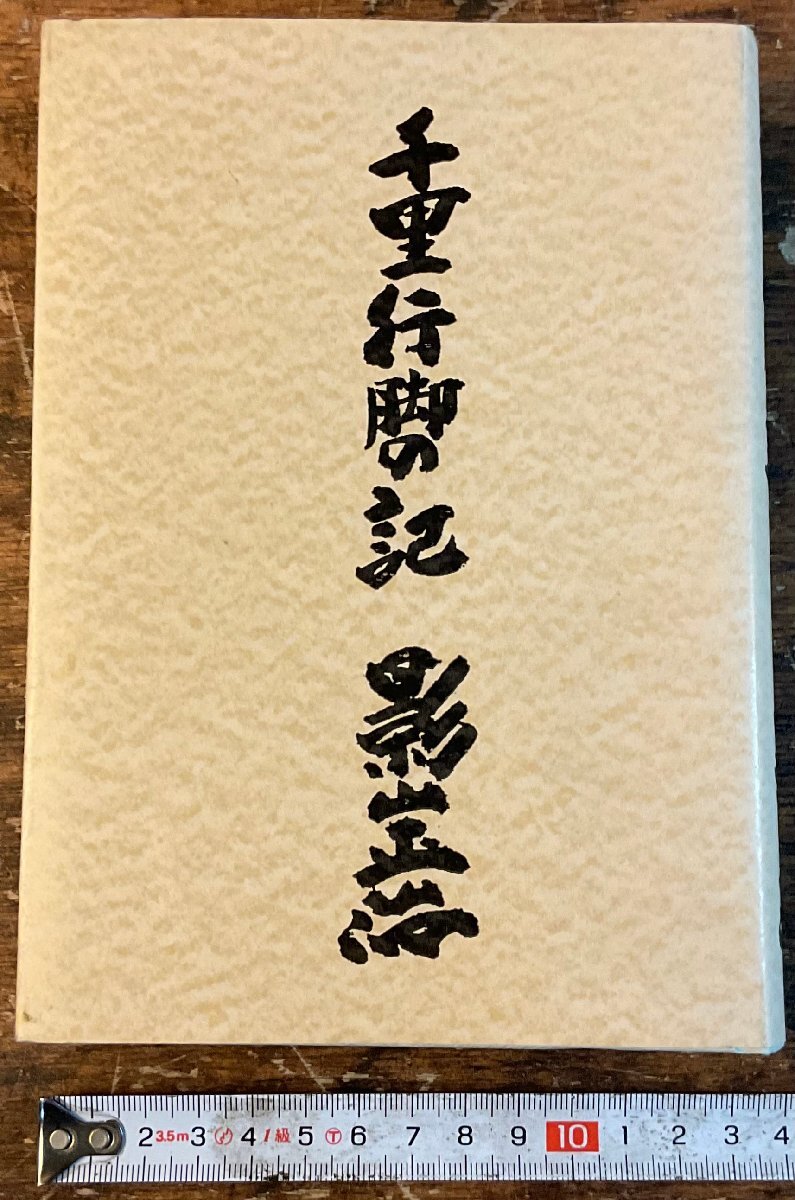 千里行脚の記 影山正治
2 3.5m 3 4 1級 5 6 7 8 9 10 1 2 3 4